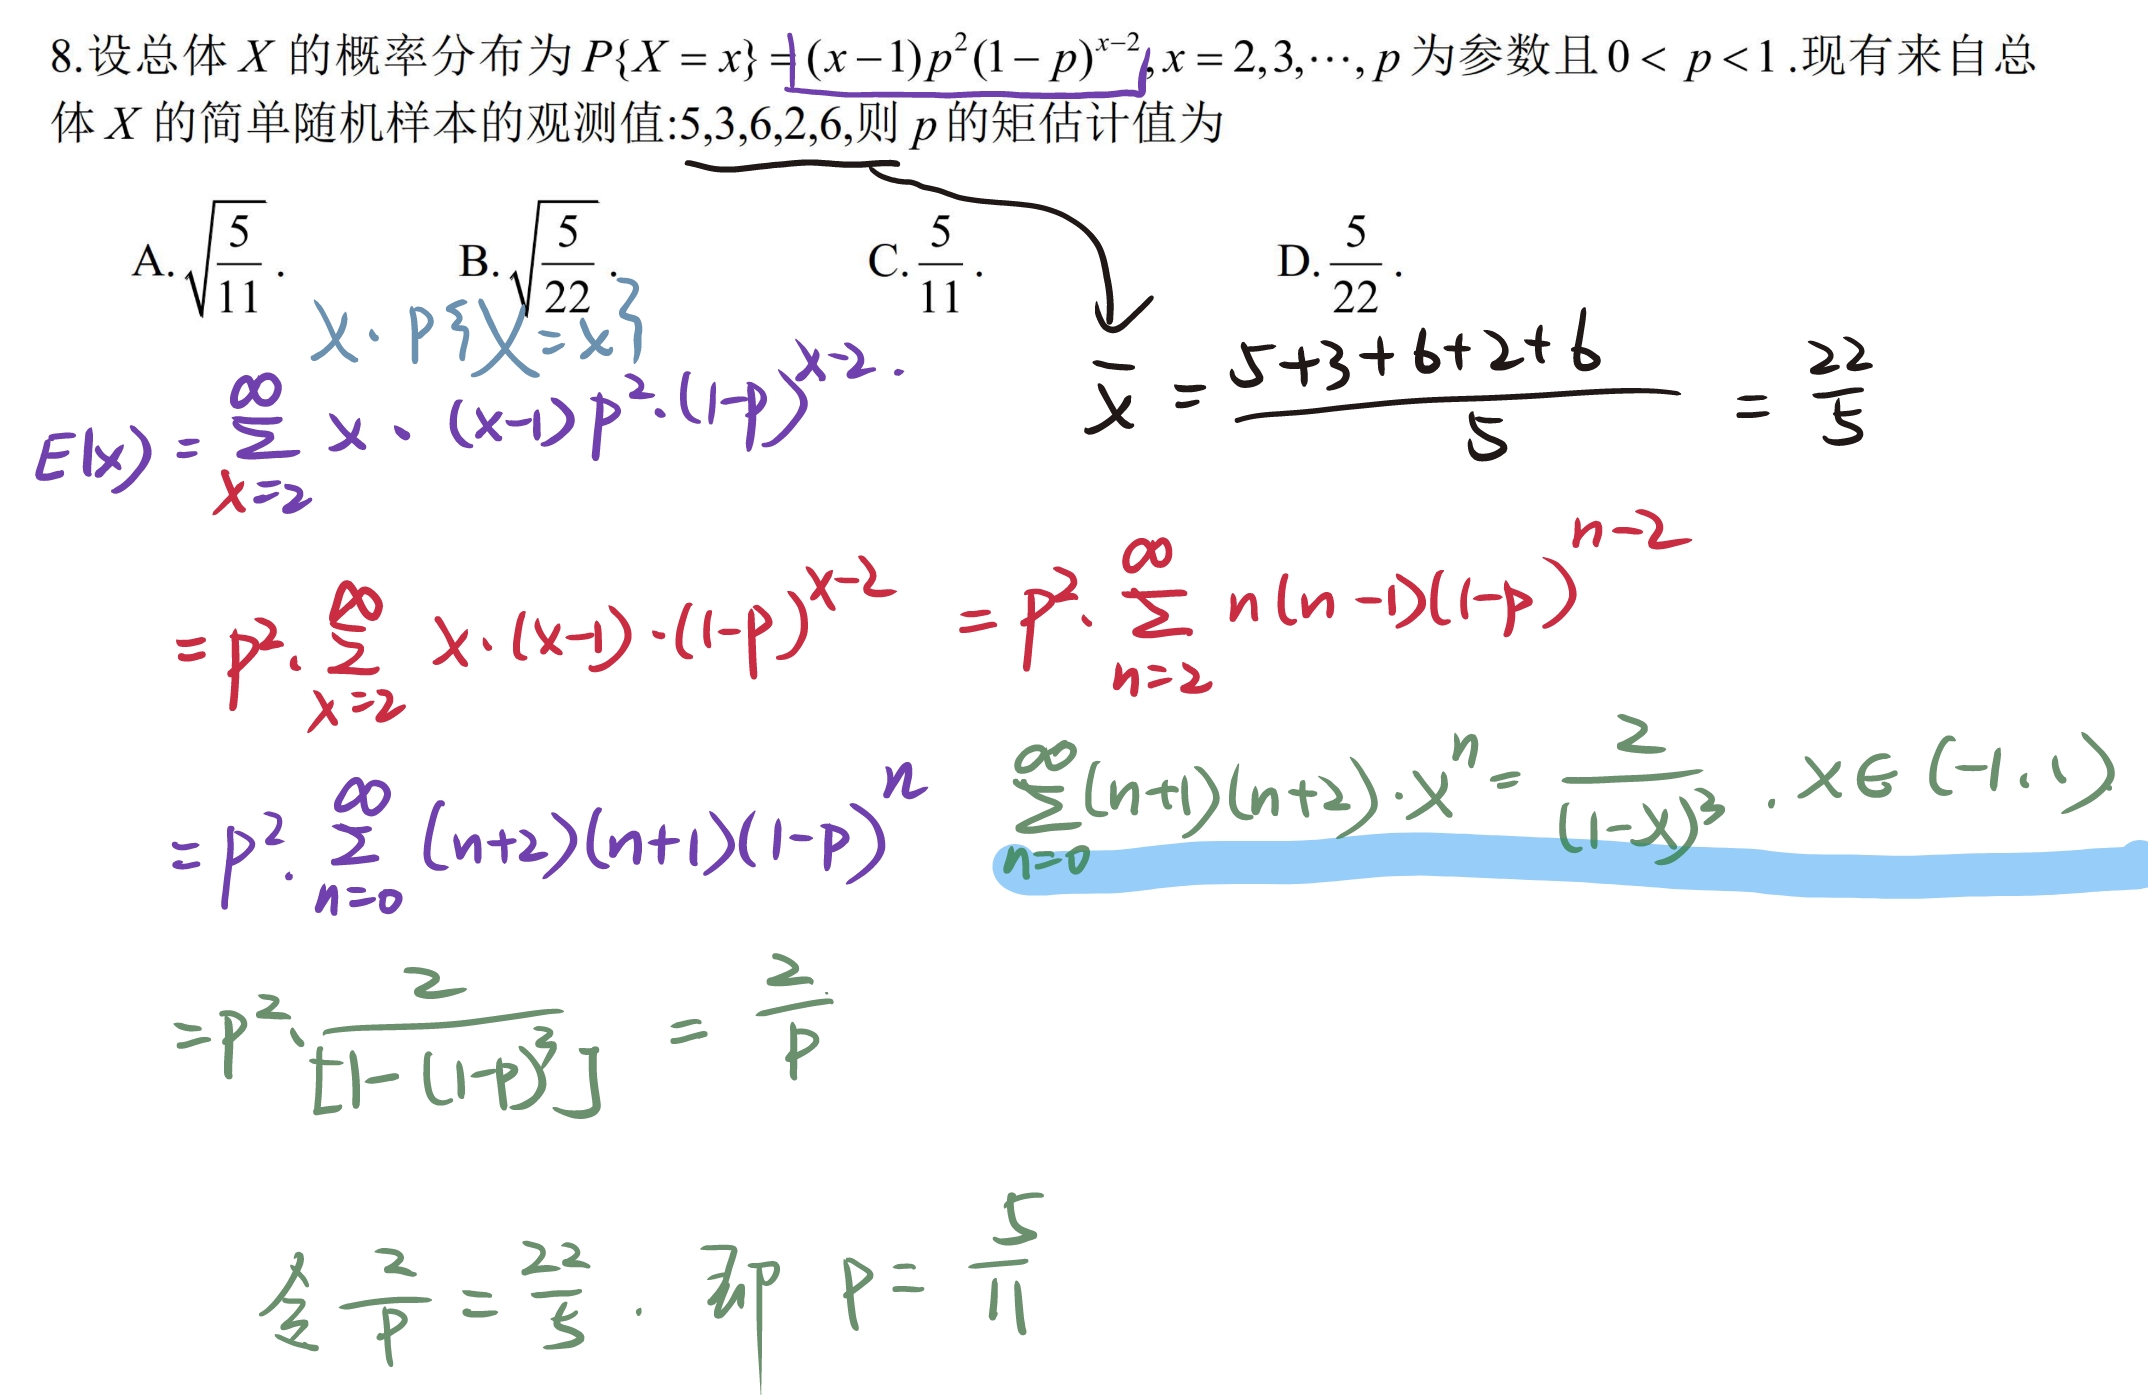 8.设总体 X 的概率分布为 P{X = x} = (x−1)p²(1−p)^{x−2}, x = 2,3,⋯, p 为参数且 0 < p < 1 .现有来自总
体 X 的简单随机样本的观测值:5,3,6,2,6,则 p 的矩估计值为
A. √(5/11) . B. √(5/22) . C. 5/11 . D. 5/22 .
x · P{X=x}
E(x) = ∑_{x=2}^{∞} x · (x-1) p² · (1-p)^{x-2} .
x̄ = (5+3+6+2+6)/5 = 22/5
= p² · ∑_{x=2}^{∞} x · (x-1) · (1-p)^{x-2} = p² · ∑_{n=2}^{∞} n(n-1)(1-p)^{n-2}
= p² · ∑_{n=0}^{∞} (n+2)(n+1)(1-p)^n
∑_{n=0}^{∞} (n+1)(n+2) · x^n = 2/(1-x)³ . x∈(-1,1)
= p² · 2/[1-(1-p)³] = 2/p
令 2/p = 22/5 . 即 p = 5/11